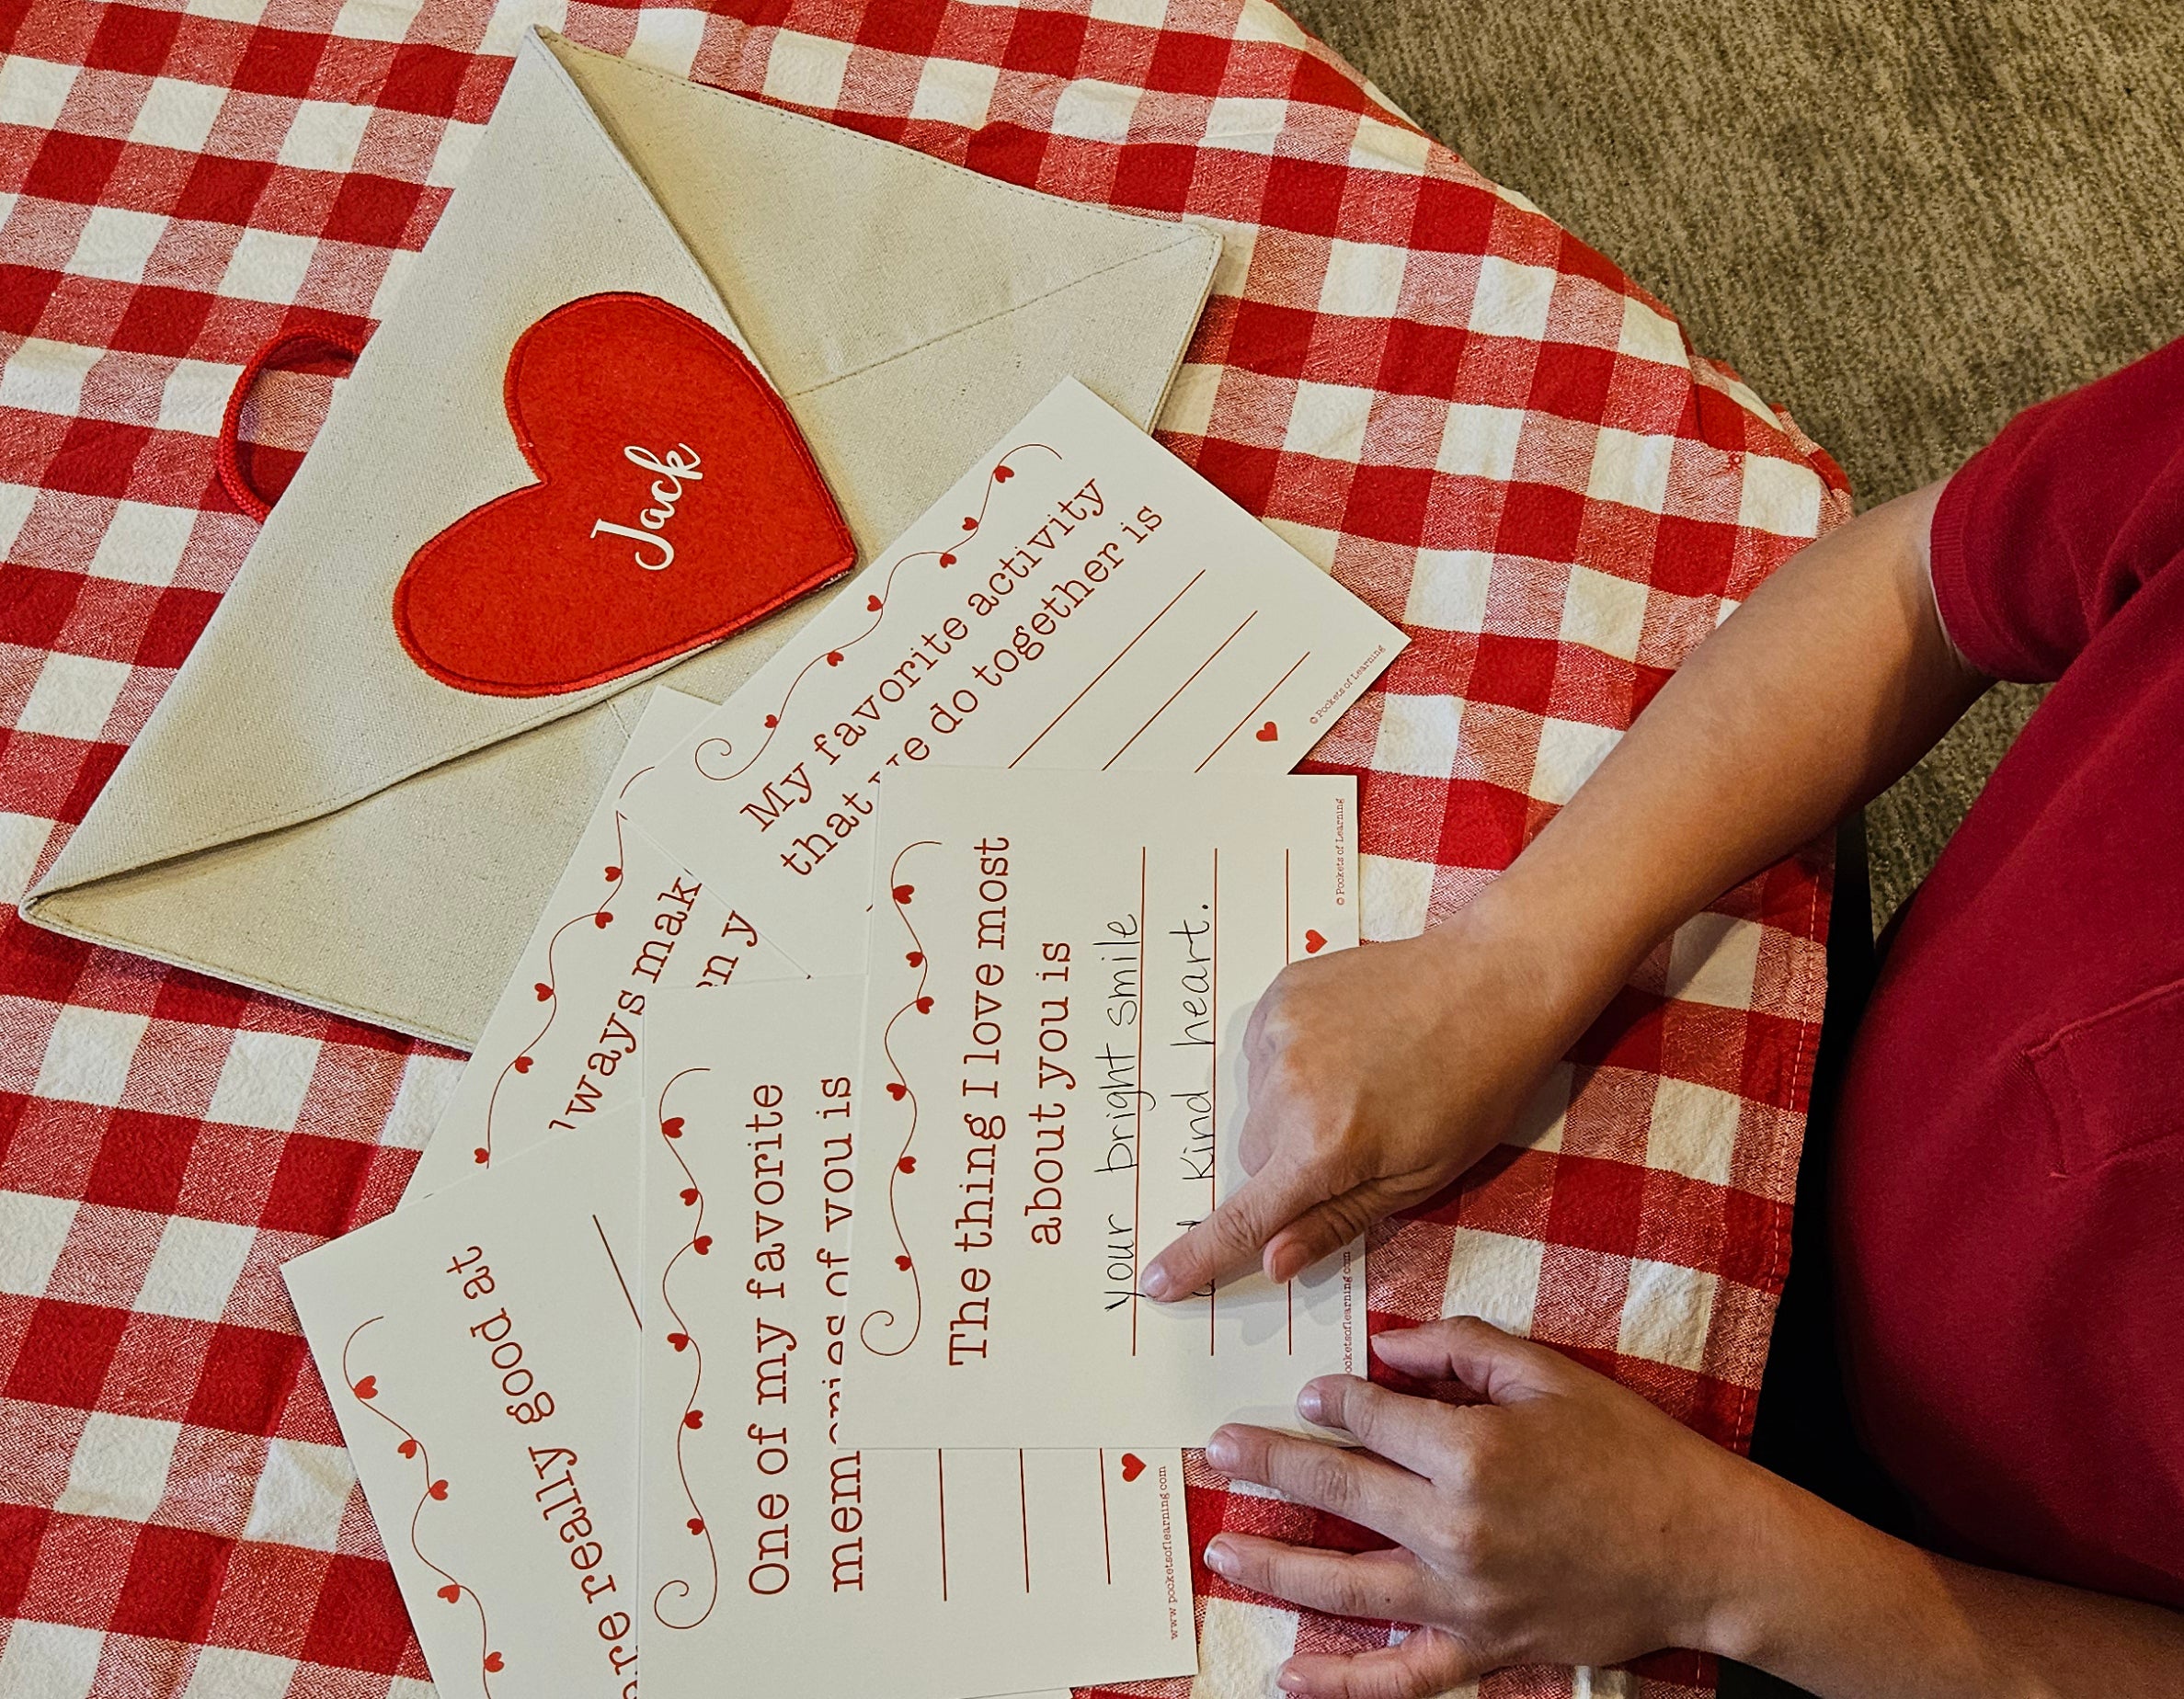 Jack
My favorite activity
that we do together is
© Pockets of Learning
lways mak
The thing I love most
about you is
your bright smile
kind heart.
© Pockets of Learning
One of my favorite
memories of you is
www.pocketsoflearning.com
re really good at